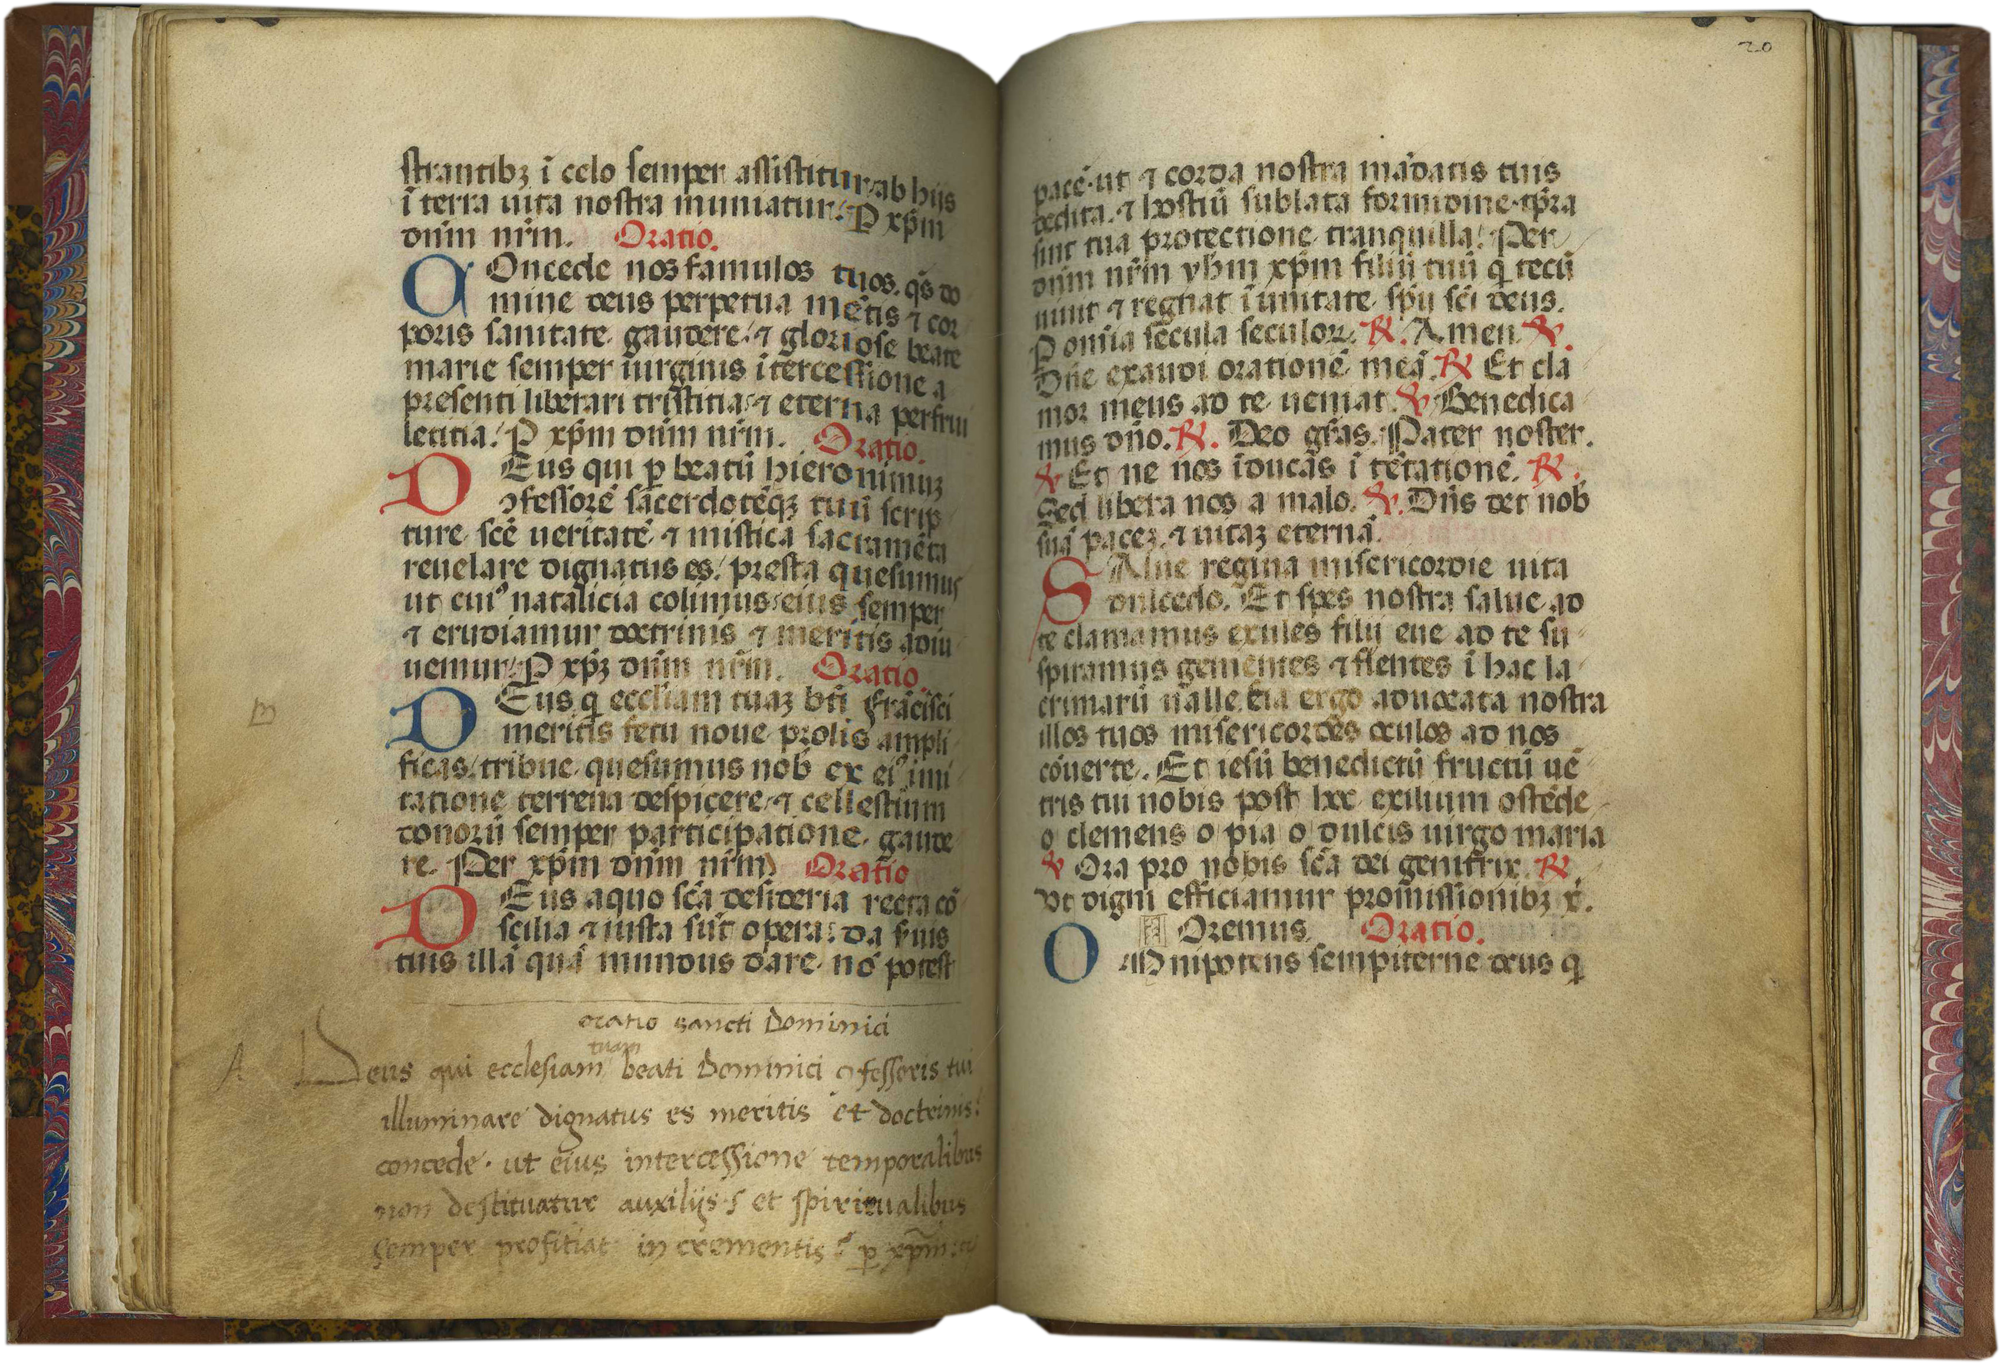 strantibꝫ ī celo semper assistitur ab hijs
ī terra uita nostra muniatur. P xp̄m
dn̄m nr̄m. Oratio.
COncede nos famulos tuos. qs̄ do
mine deus perpetua mētis ⁊ cor
poris sanitate. gaudere. ⁊ gloriose beate
marie semper uirginis ītercessione a
presenti liberari tristitia. ⁊ eterna perfrui
letitia. P xp̄m dn̄m nr̄m. Oratio.
DEus qui ꝑ beatū hieronimuꝫ
ꝯfessorē sacerdotēqꝫ tuū scrip
ture. scē ueritatē. ⁊ mistica sacramēta
reuelare dignatus es. presta quesumus
ut cuiꝰ natalicia colimus. eius semper
⁊ erudiamur doctrinis ⁊ meritis adiu
uemur. P xp̄ꝫ dn̄m nr̄m. Oratio
DEus q̄ eccliam tuaꝫ bt̄i frācisci
meritis fetu noue prolis ampli
ficas. tribue. quesumus nob ex eiꝰ imi
tatione terrena despicere. ⁊ cellestium
donorū semper participatione. gaude
re. Per xp̄m dn̄m nr̄m Oratio
DEus aquo sc̄a desideria recta cō
scilia ⁊ iusta sūt opera. da suis
tuis illā quā mundus dare. nō potest
oratio sancti Dominici
A Deus qui ecclesiam tuam beati Dominici ꝯfessoris tui
illuminare dignatus es meritis et doctrinis:
concede. ut eius intercessione temporalibus
non destituatur auxilijs et spiritualibus
semper profitiat in crementis ꝑ xp̄m
m
20
pacē. ut ⁊ corda nostra mādatis tuis
dedita. ⁊ hostiū sublata formidine. tp̄ra
sint tua protectione. tranquilla. Per
dn̄m nr̄m yhm xp̄m filiū tuū q̄ tecū
uiuit ⁊ regnat ī unitate. sp̄u sc̄i deus.
P omīa secula seculoꝝ. ℟. Amen. ℣.
Dn̄e exaudi orationē meā. ℟ Et cla
mor meus ad te ueniat. ℣ Benedica
mus dn̄o. ℟. Deo gr̄as. Pater noster.
℣ Et ne nos īducās ī tētationē. ℟.
Sed libera nos a malo. ℣. Dn̄s det nob
suā paceꝫ. ⁊ uitaꝫ eternā.
SAlue regina misericordie uita
dulcedo. Et spes nostra salue ad
te clamamus exules filij eue ad te su
spiramus gementes ⁊ flentes ī hac la
crimarū ualle. Eia ergo aduocata nostra
illos tuos misericordes oculos ad nos
cōuerte. Et iesū benedictū fructū uē
tris tui nobis post hoc exilium ostēde
o clemens o pia o dulcis uirgo maria
℣ Ora pro nobis sc̄a dei genitrix. ℟
Vt digni efficiamur promissionibꝫ x̄.
Oremus. Oratio.
OMnipotens sempiterne deus q̄